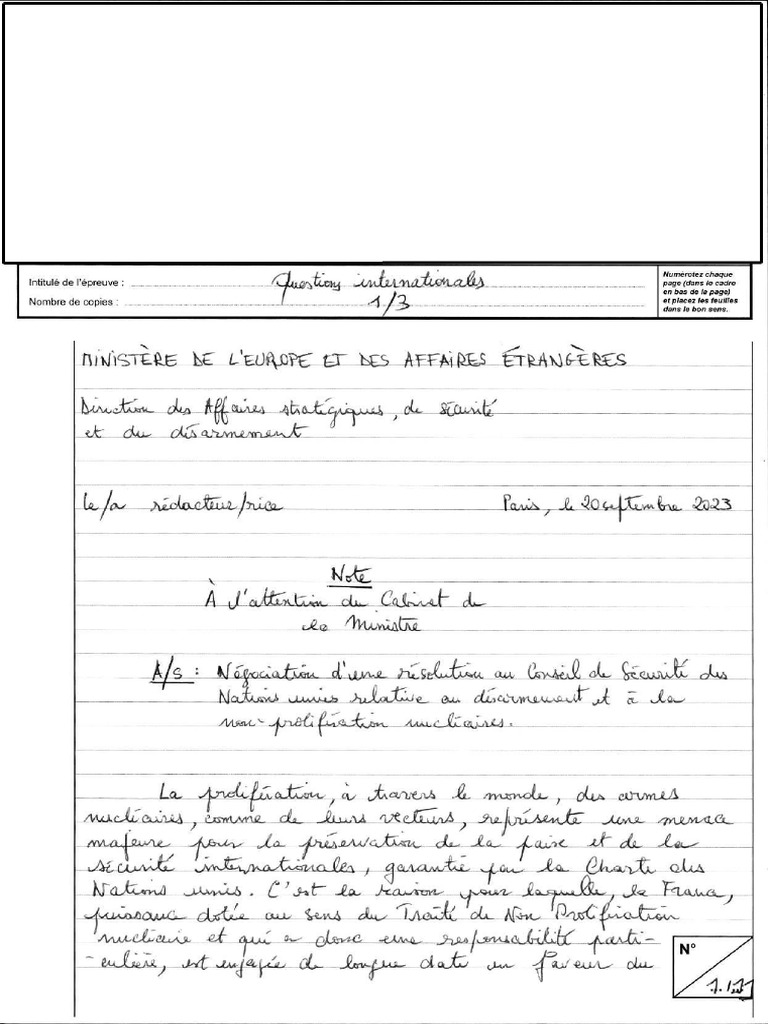 Intitulé de l'épreuve : Questions internationales
Nombre de copies : 1/3
Numérotez chaque
page (dans le cadre
en bas de la page)
et placez les feuilles
dans le bon sens.
MINISTÈRE DE L'EUROPE ET DES AFFAIRES ÉTRANGÈRES
Direction des Affaires stratégiques, de sécurité
et du désarmement
Le/a rédacteur/rice Paris, le 20 septembre 2023
Note
À l'attention du Cabinet de
la Ministre
A/S : Négociation d'une résolution au Conseil de Sécurité des
Nations unies relative au désarmement et à la
non-prolifération nucléaires.
La prolifération, à travers le monde, des armes
nucléaires, comme de leurs vecteurs, représente une menace
majeure pour la préservation de la paix et de la
sécurité internationales, garantie par la Charte des
Nations unies. C'est la raison pour laquelle, la France,
puissance dotée au sens du Traité de Non Prolifération
nucléaire et qui a donc une responsabilité parti-
-culière, est engagée de longue date en faveur du
N°